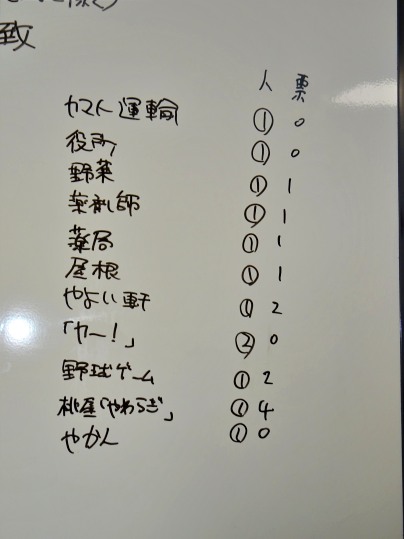 致
人 票
ヤマト運輸 ① 0
役所 ① 0
野菜 ① 1
薬剤師 ① 1
薬局 ① 1
屋根 ① 1
やよい軒 ① 2
「ヤー!」 ② 0
野球ゲーム ① 2
桃屋「やわらぎ」 ① 4
やかん ① 0